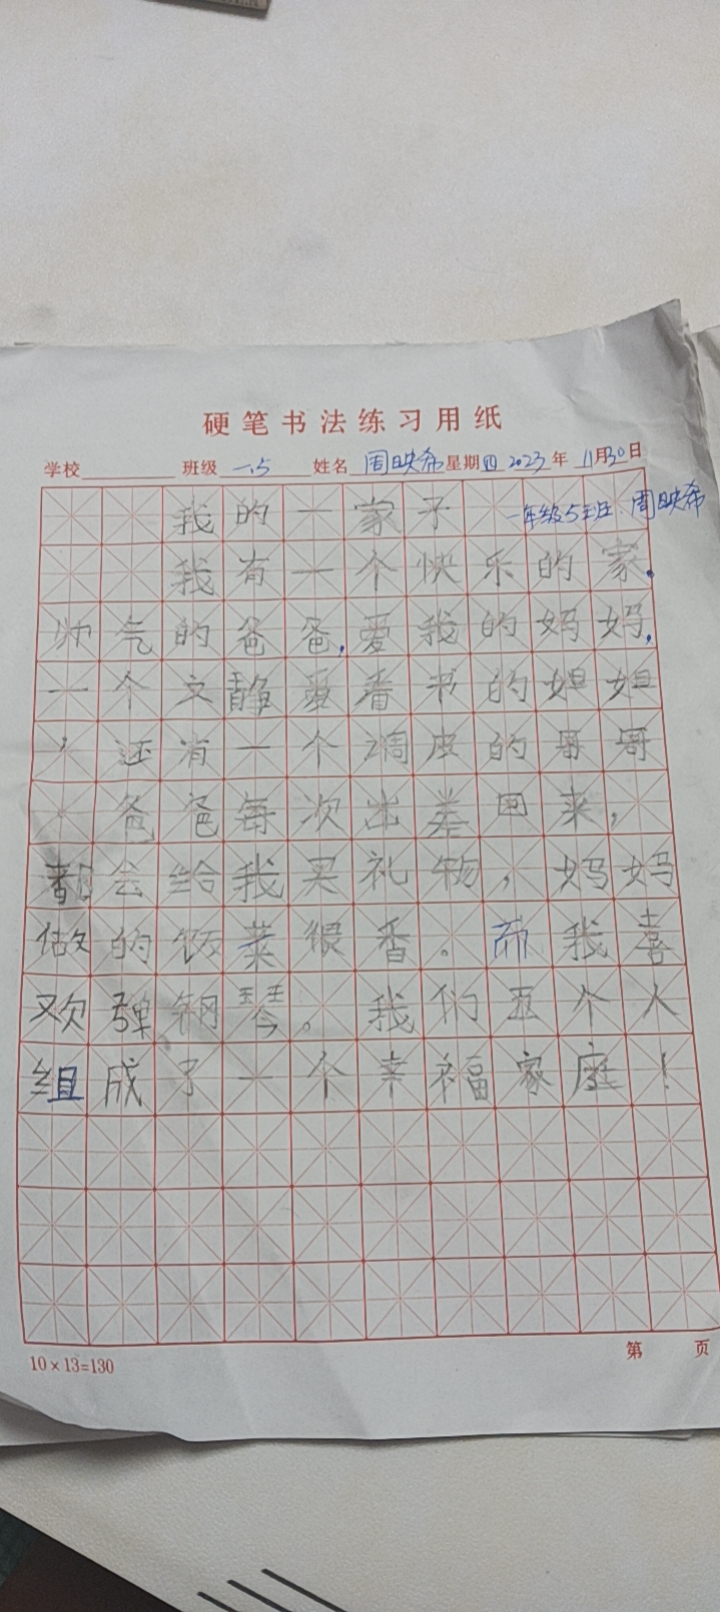 硬笔书法练习用纸
学校 班级 一.5 姓名 周映希 星期四 2023年 11月30日
我的一家子 一年级5班 周映希
我有一个快乐的家.
帅气的爸爸,爱我的妈妈,
一个文静爱看书的姐姐
,还有一个调皮的哥哥
。爸爸每次出差回来,
都会给我买礼物,妈妈
做的饭菜很香。而我喜
欢弹钢琴。我们五个人
组成了一个幸福家庭!
10×13=130
第 页